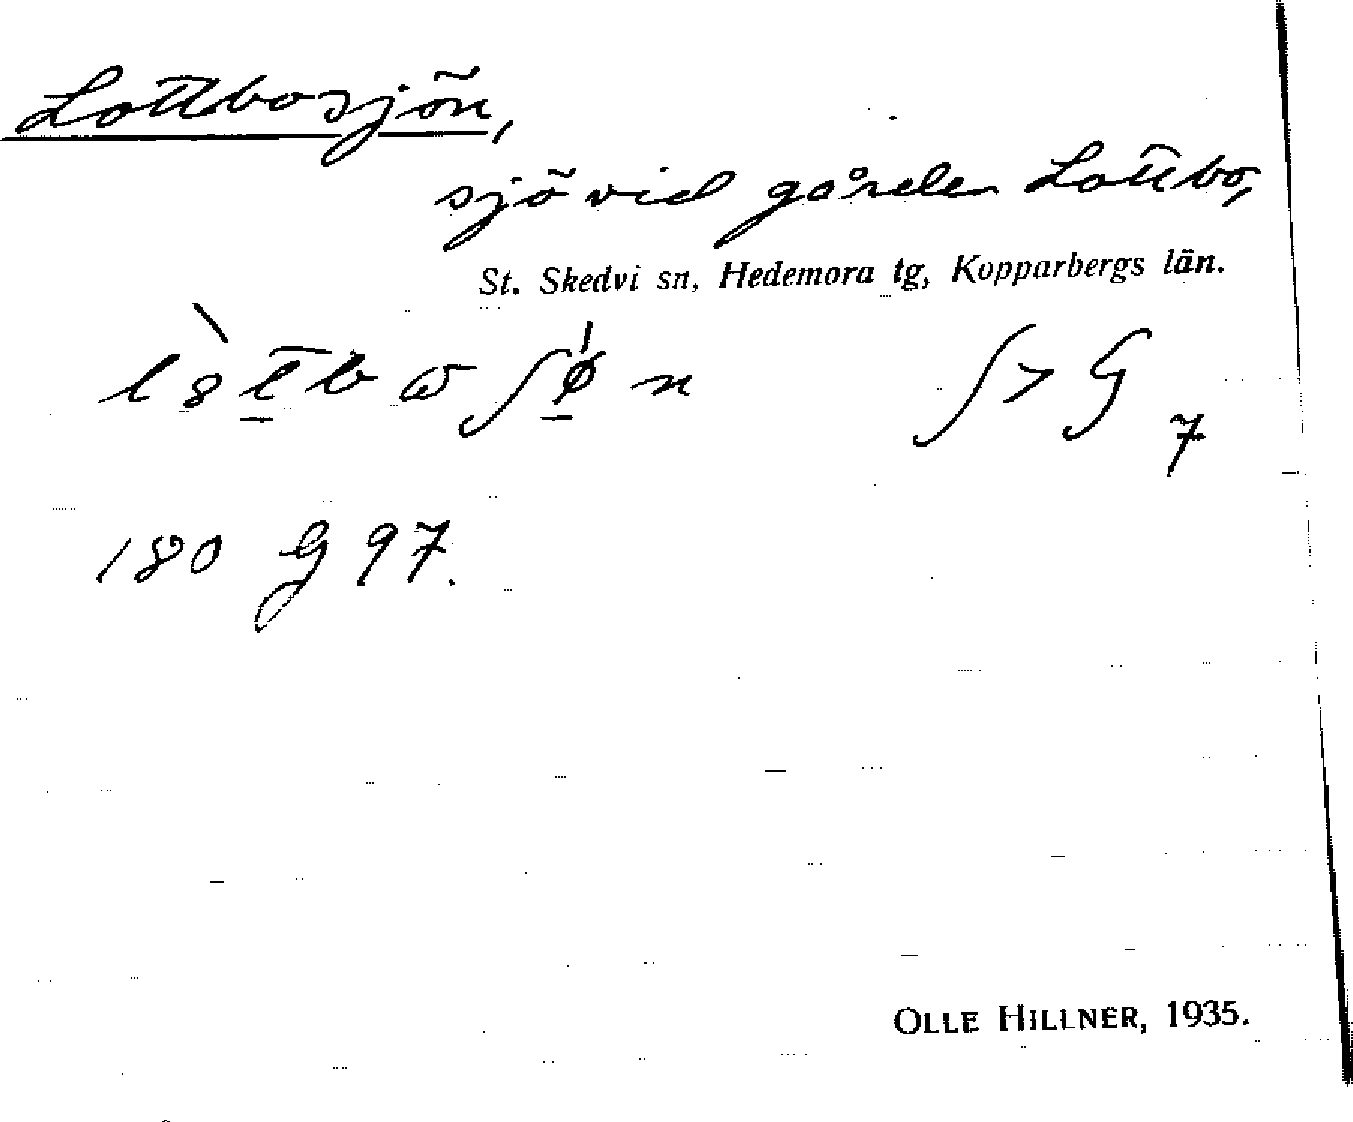 Lottbosjön,
sjö vid gården Lottbo,
St. Skedvi sn, Hedemora tg, Kopparbergs län.
180 G 97.
OLLE HILLNER, 1935.